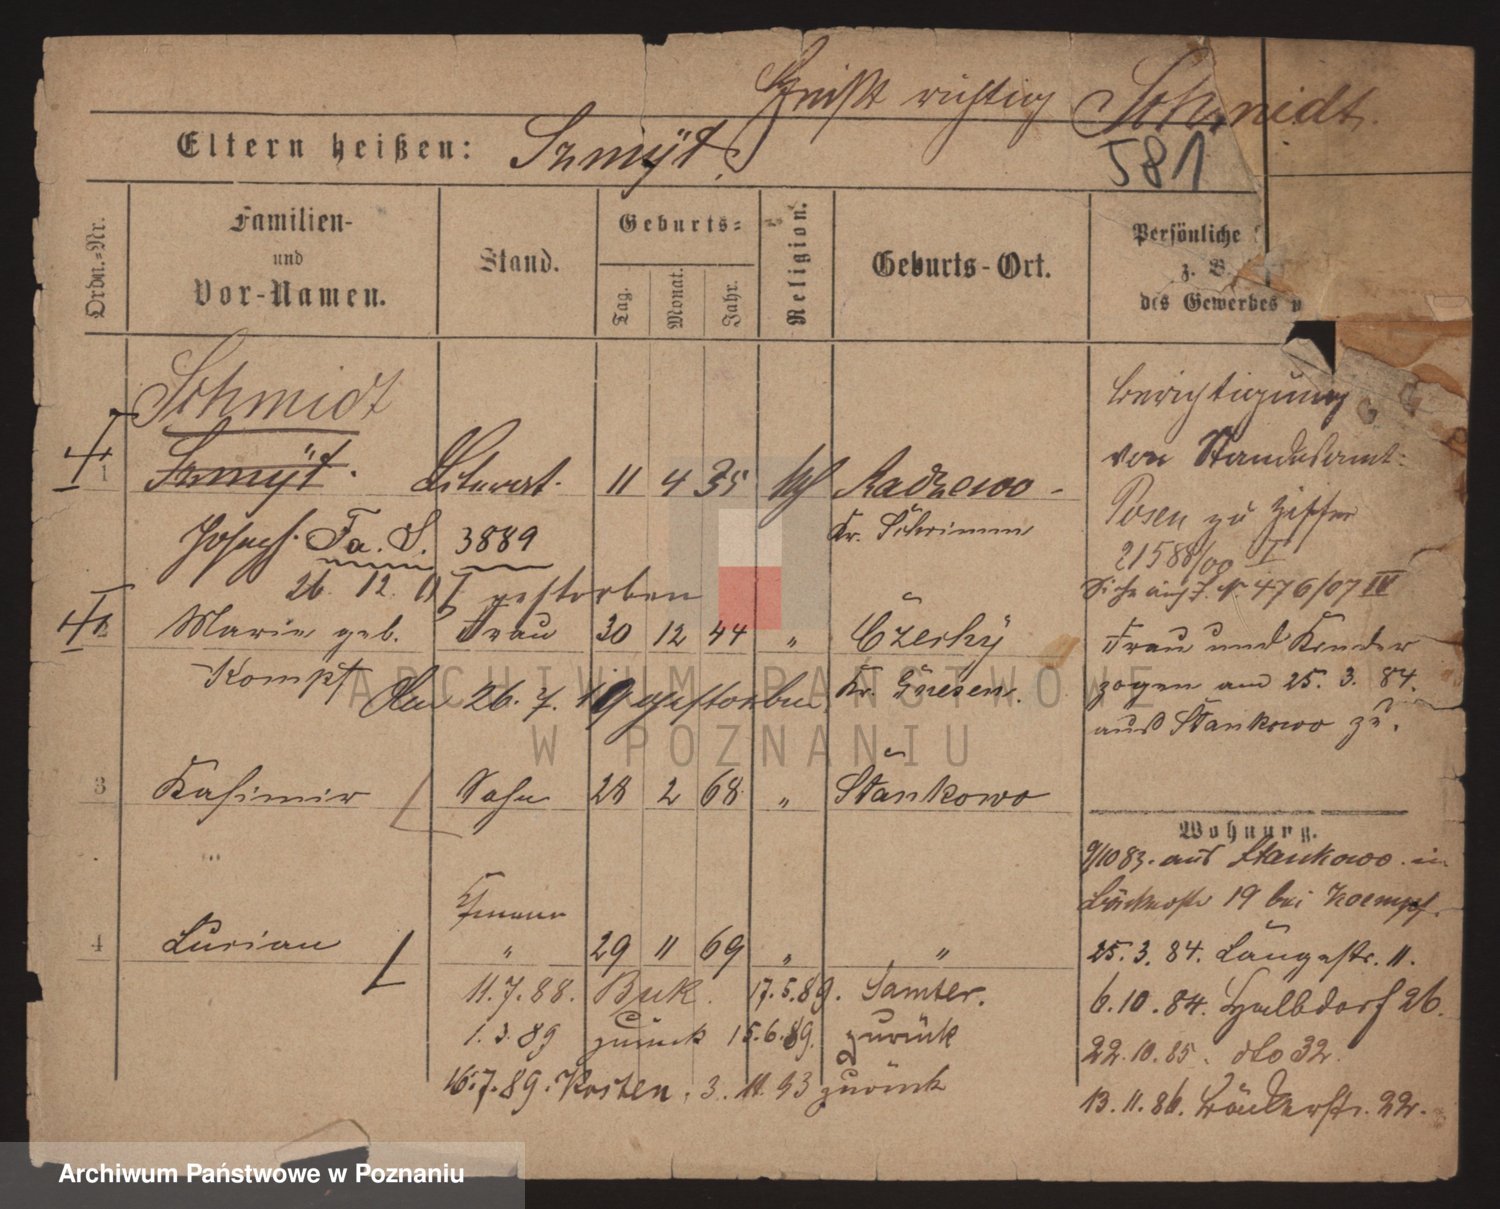 heißt richtig Schmidt.
Eltern heißen: Szmÿt.
581
Ordn.-Nr.
Familien-
und
Vor-Namen.
Stand.
Geburts-
Tag.
Monat.
Jahr.
Religion.
Geburts-Ort.
Persönliche
z. B.
des Gewerbes
Schmidt
1 Szmÿt. 11 4 35 kth Radzewo
Joseph. Fa. S. 3889 Kr. Schrimm
26. 12. gestorben
2 Marie geb. Frau 30 12 44 " Czeskÿ
Kompf Kr. Gnesen.
Am 26. 7. 19 gestorben
3 Kasimir Sohn 28 2 68 " Stankowo
4 Lucian " 29 11 69 " "
11.7.88. Buk. 17.5.89. Samter.
1.3.89 zurück 15.6.89. zurück
16.7.89. Kosten. 3.11.93 zurück
Berichtigung
von Standesamt
Posen zu Ziffer
21588/00 I
Siehe auch J. N 476/07 IV
Frau und Kinder
zogen am 25. 3. 84.
aus Stankowo zu.
Wohnung.
9/10 83. aus Stankowo in
19 bei Koempf.
25. 3. 84. Langestr. 11.
6. 10. 84. Halbdorf 26.
22. 10. 85. dto 32.
13. 11. 86. Bäckerstr. 22.
ARCHIWUM PAŃSTWOWE
W POZNANIU
Archiwum Państwowe w Poznaniu